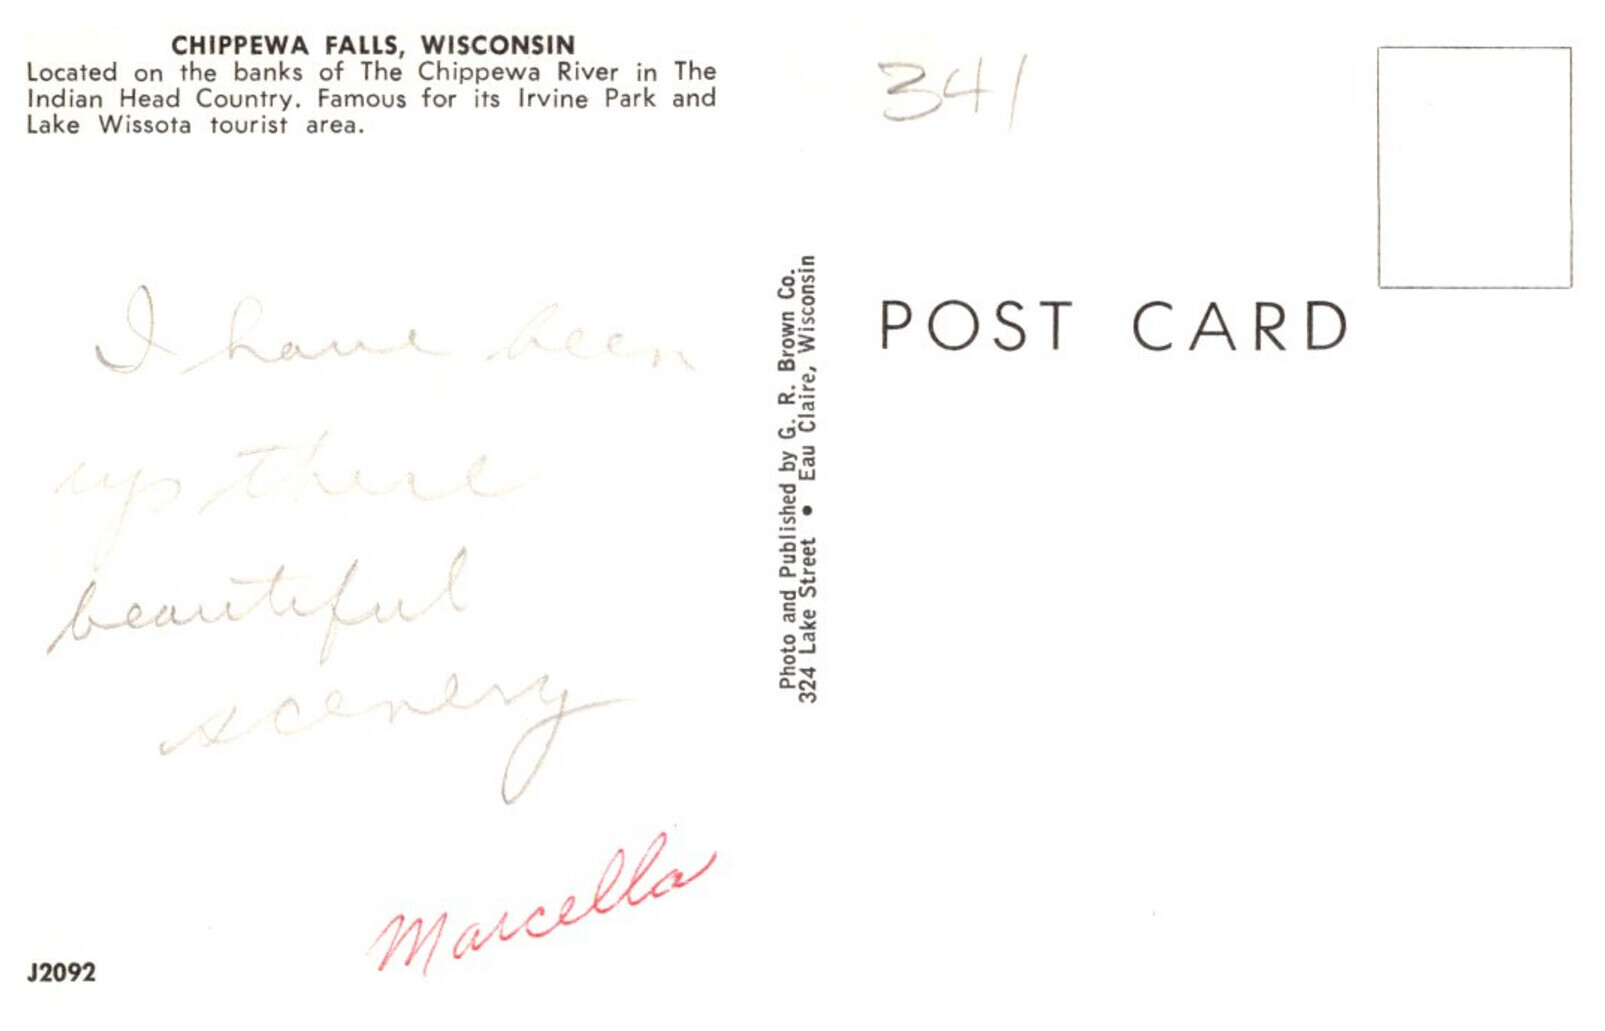 CHIPPEWA FALLS, WISCONSIN
Located on the banks of The Chippewa River in The
Indian Head Country. Famous for its Irvine Park and
Lake Wissota tourist area.
I have been
up there
beautiful
scenery
Marcella
J2092
Photo and Published by G. R. Brown Co.
324 Lake Street • Eau Claire, Wisconsin
341
POST CARD